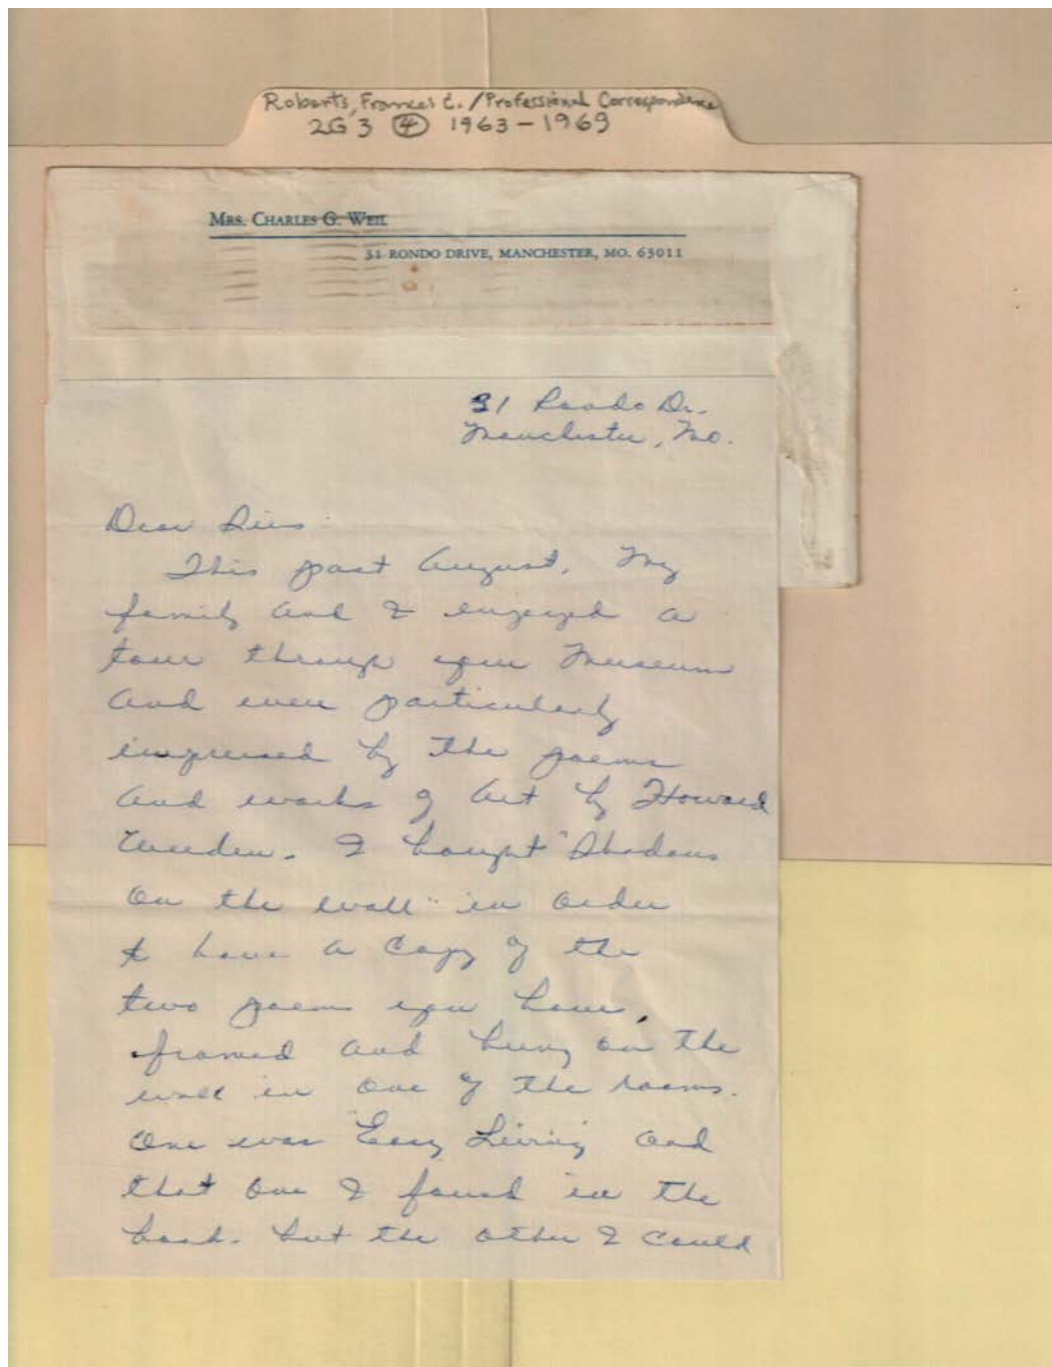 Roberts, Frances C. / Professional Correspondence
2G3 (4) 1963-1969
MRS. CHARLES G. WEIL
31 RONDO DRIVE, MANCHESTER, MO. 63011
31 Rondo Dr.
Manchester, Mo.
Dear Sirs:
This past August, My
family and I enjoyed a
tour through your Museum
and were particularly
impressed by the poems
and works of art by Howard
Weeden. I bought "Shadows
on the wall" in order
to have a copy of the
two poems you have,
framed and hung on the
wall in one of the rooms.
One was "Easy Living and
that one I found in the
book. but the other I could